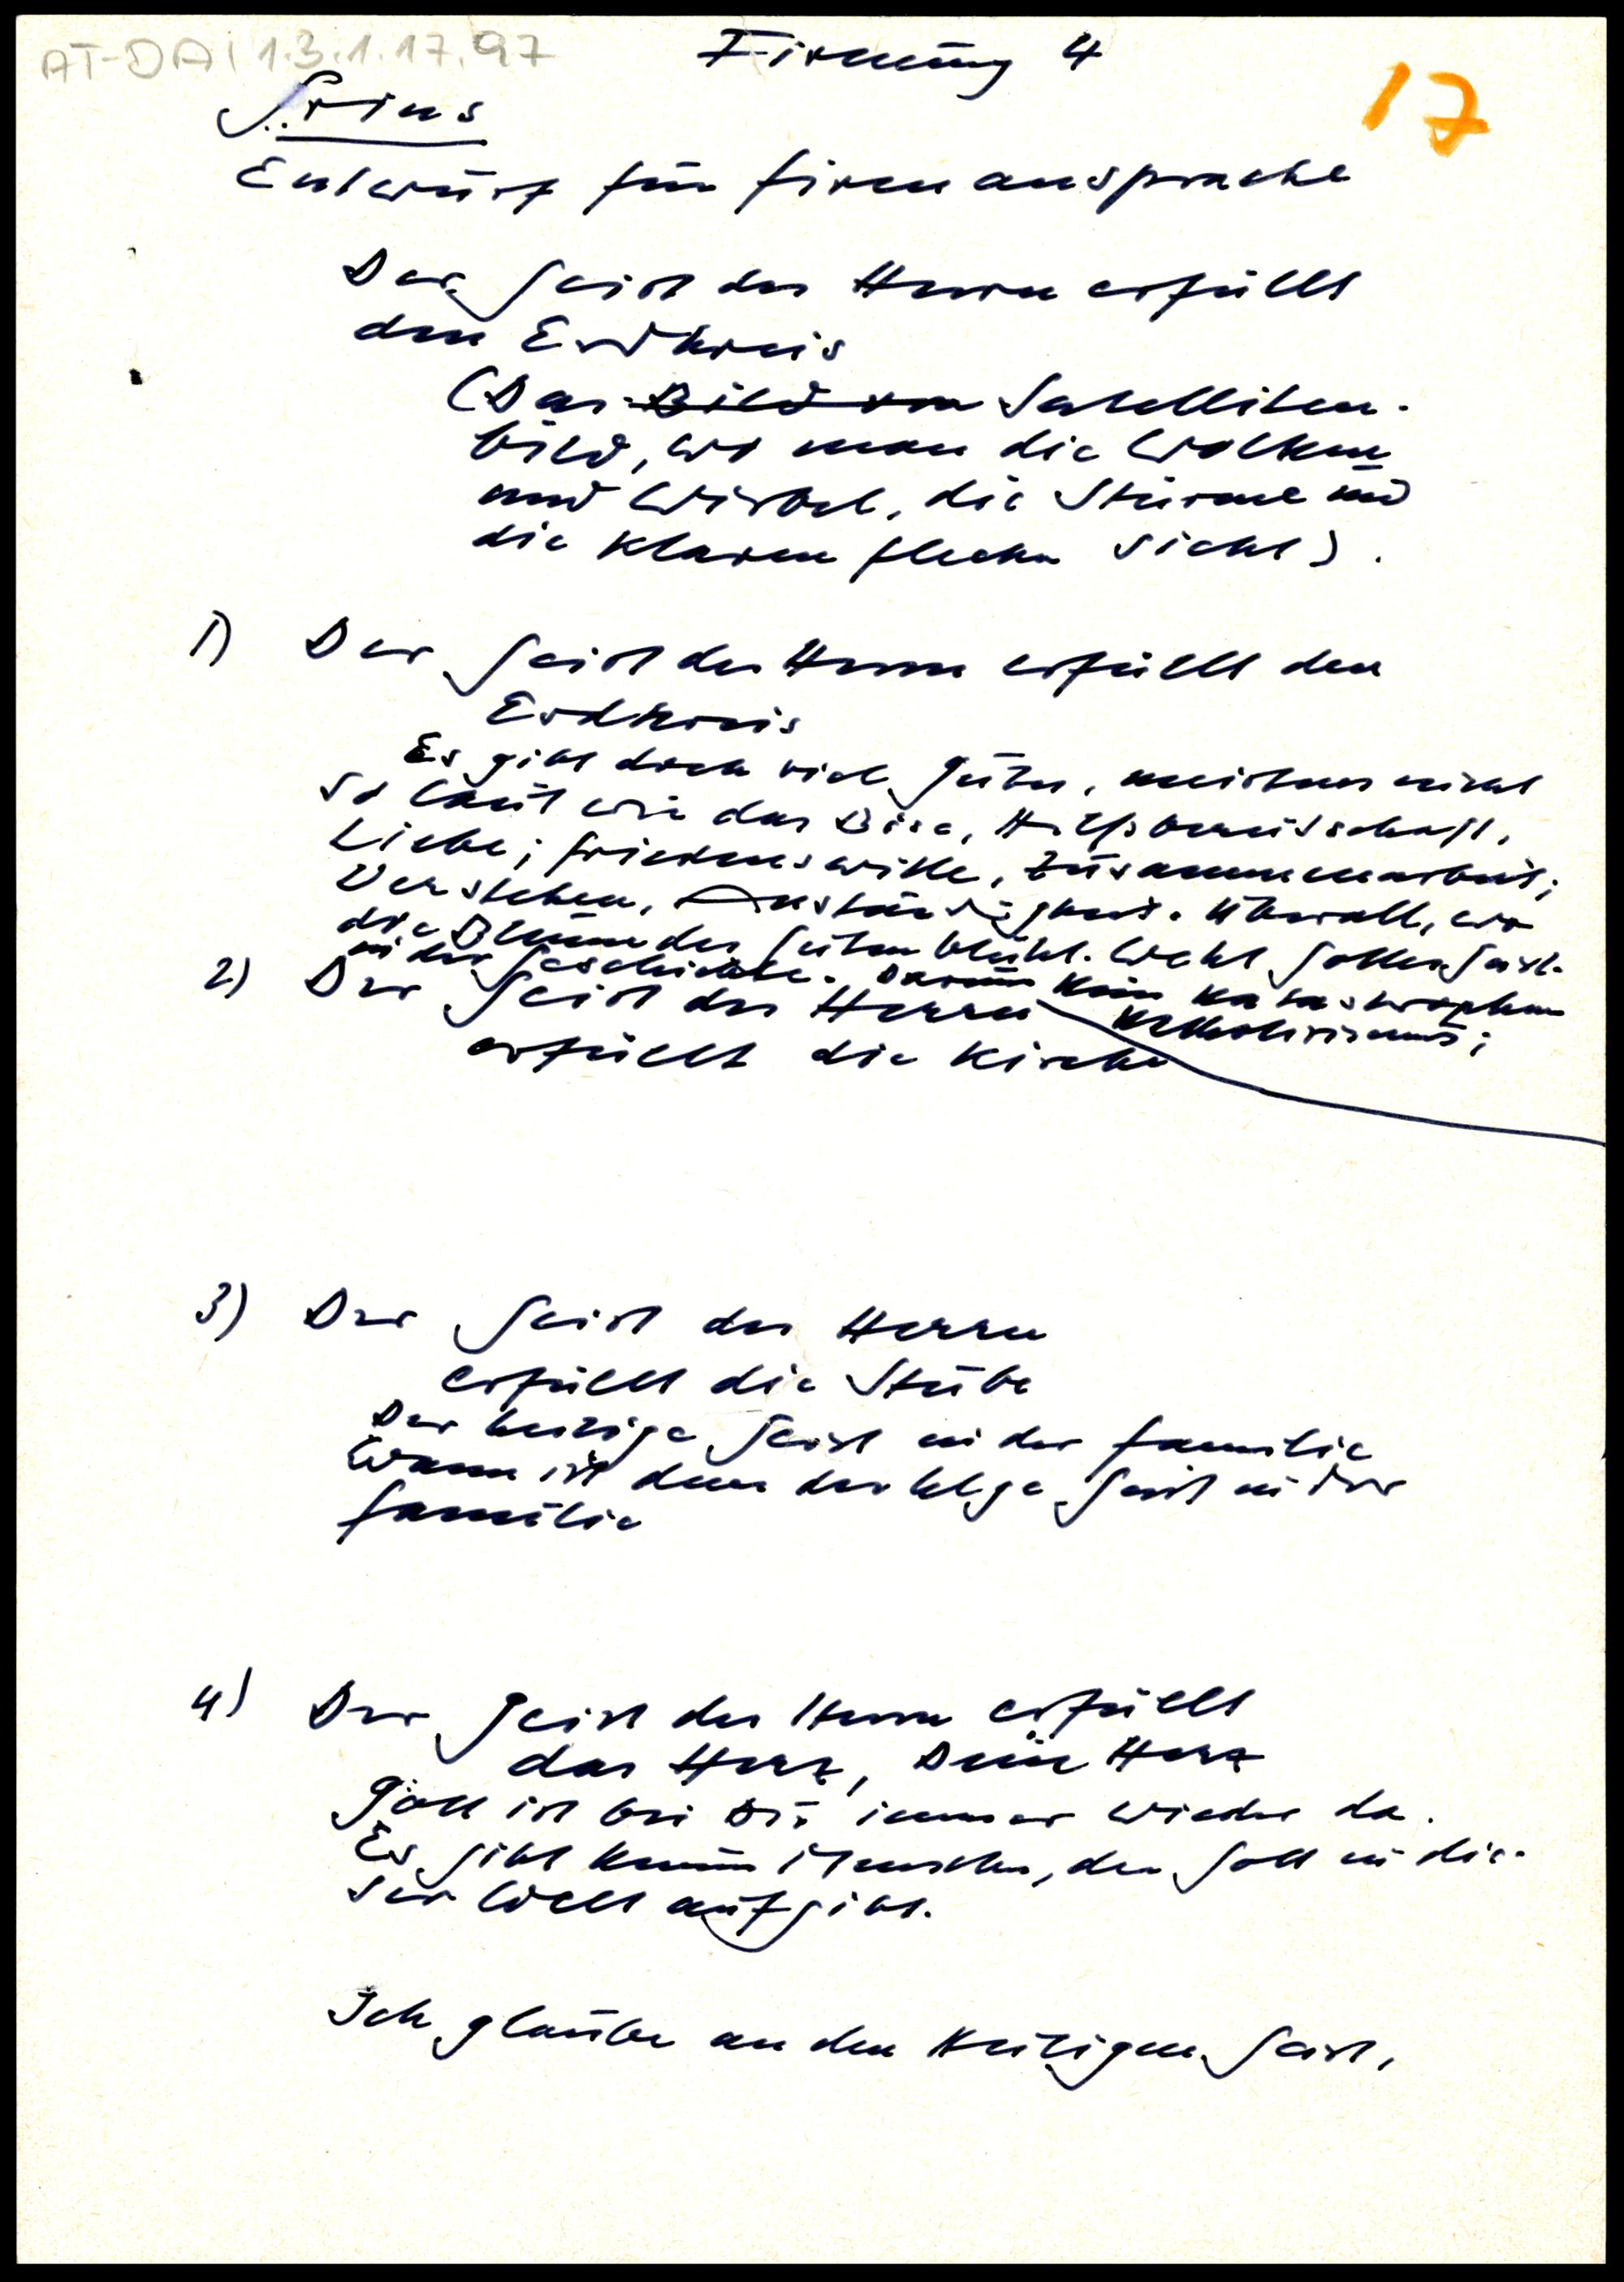 AT-DAI 1.3.1.17.97
Firmung 4
17
Grins
Entwurf für Firmansprache
Der Geist des Herrn erfüllt
den Erdkreis
(Das Bild von Satelliten-
bild, wo man die Wolken
und Wirbel, die Stürme und
die klaren Flecken sieht).
1) Der Geist des Herrn erfüllt den
Erdkreis
Es gibt doch viel Gutes, meistens nicht
so laut wie das Böse, Hilfsbereitschaft,
Liebe; Friedenswille, Zusammenarbeit;
Verstehen, Anständigkeit. Überall, wo
die Blume des Guten blüht. Weht Gottes Geist.
in der Geschichte. Darum kein Katastrophen
2) Der Geist des Herrn
erfüllt die Kirche
3) Der Geist des Herrn
erfüllt die Stube
Der heilige Geist in der Familie
Wann ist denn der hlge Geist in der
Familie
4) Der Geist des Herrn erfüllt
das Herz, Dein Herz
Gott ist bei Dir immer wieder da.
Es gibt keinen Menschen, den Gott in die-
ser Welt aufgibt.
Ich glaube an den Heiligen Geist,